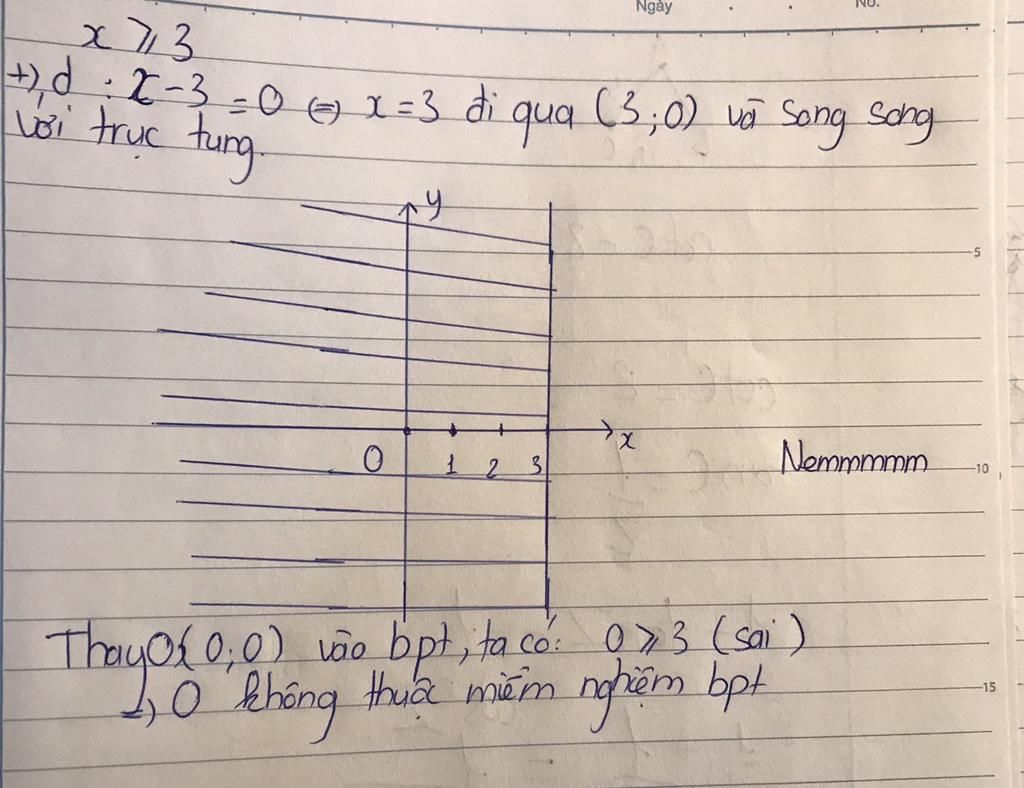 Ngày
No.
x ≥ 3
+), d : x - 3 = 0 ⇔ x = 3 đi qua (3;0) và song song
với trục tung.
y
5
x
O 1 2 3
Nemmmmm
10
Thay O(0;0) vào bpt, ta có: 0 ≥ 3 (sai)
→ O không thuộc miền nghiệm bpt
15